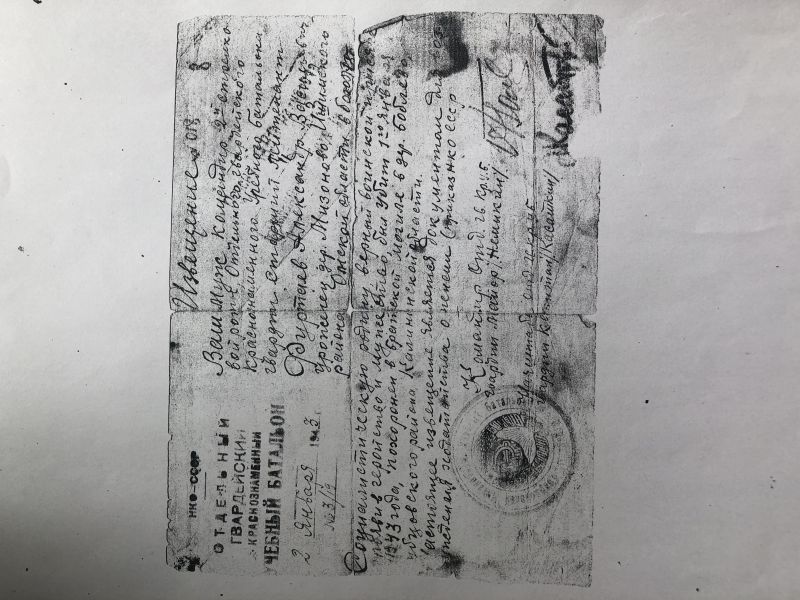 НКО-СССР
ОТДЕЛЬНЫЙ
ГВАРДЕЙСКИЙ
КРАСНОЗНАМЕННЫЙ
УЧЕБНЫЙ БАТАЛЬОН
2 Января 1943 г.
№ 3/19
Извещение
Ваш муж командир 2й стрелко
вой роты Отдельного гвардейского
краснознаменного Учебного батальона
гвардии старший лейтенант
Александр
уроженец дер. Мизоново Ишимского
района Омской области в бою за
Социалистическую родину, верный воинской присяге
проявив геройство и мужество, был убит 1го января
1943 года, похоронен в братской могиле в дер. Бобаево
района Калининской области.
Настоящее извещение является документом для
ходатайства о пенсии (приказ НКО СССР
Командир Отд. гв. кр. уб.
гвардии майор /Немыкин/
гвардии капитан /Касаткин/